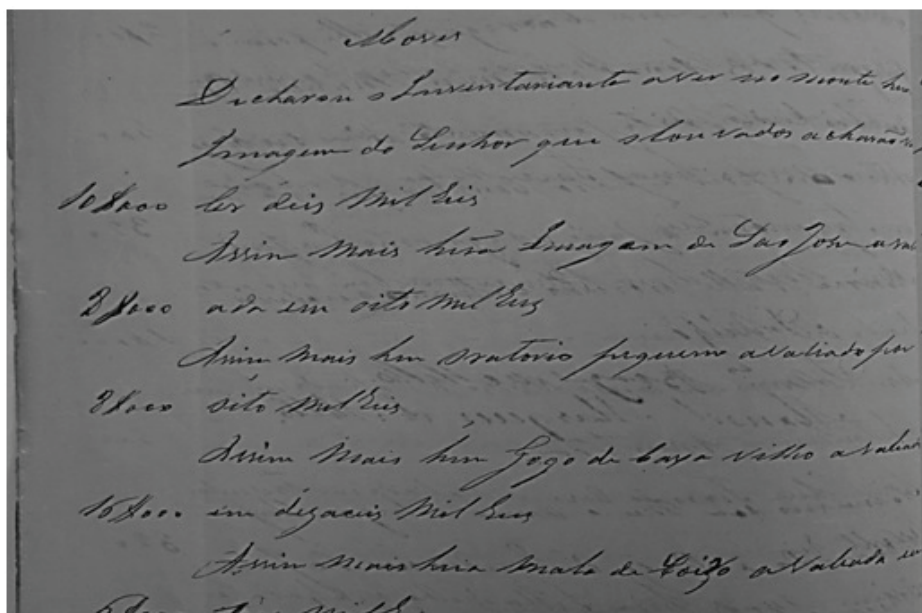 Moveis
Declarou o Inventariante aver no monte hua
Imagem do Senhor que slouvados acharão
10$000 ler deis mil Reis
Assim mais hũa Imagem de Sao Jose avali
8$000 ada em oito mil Reis
Assim mais hum oratorio pequeno avaliado por
8$000 oito mil Reis
Assim mais hum Jogo de caxa velho avalia
16$000 em dezaceis mil Reis
Assim mais hũa mala de avaliada em
mil Reis